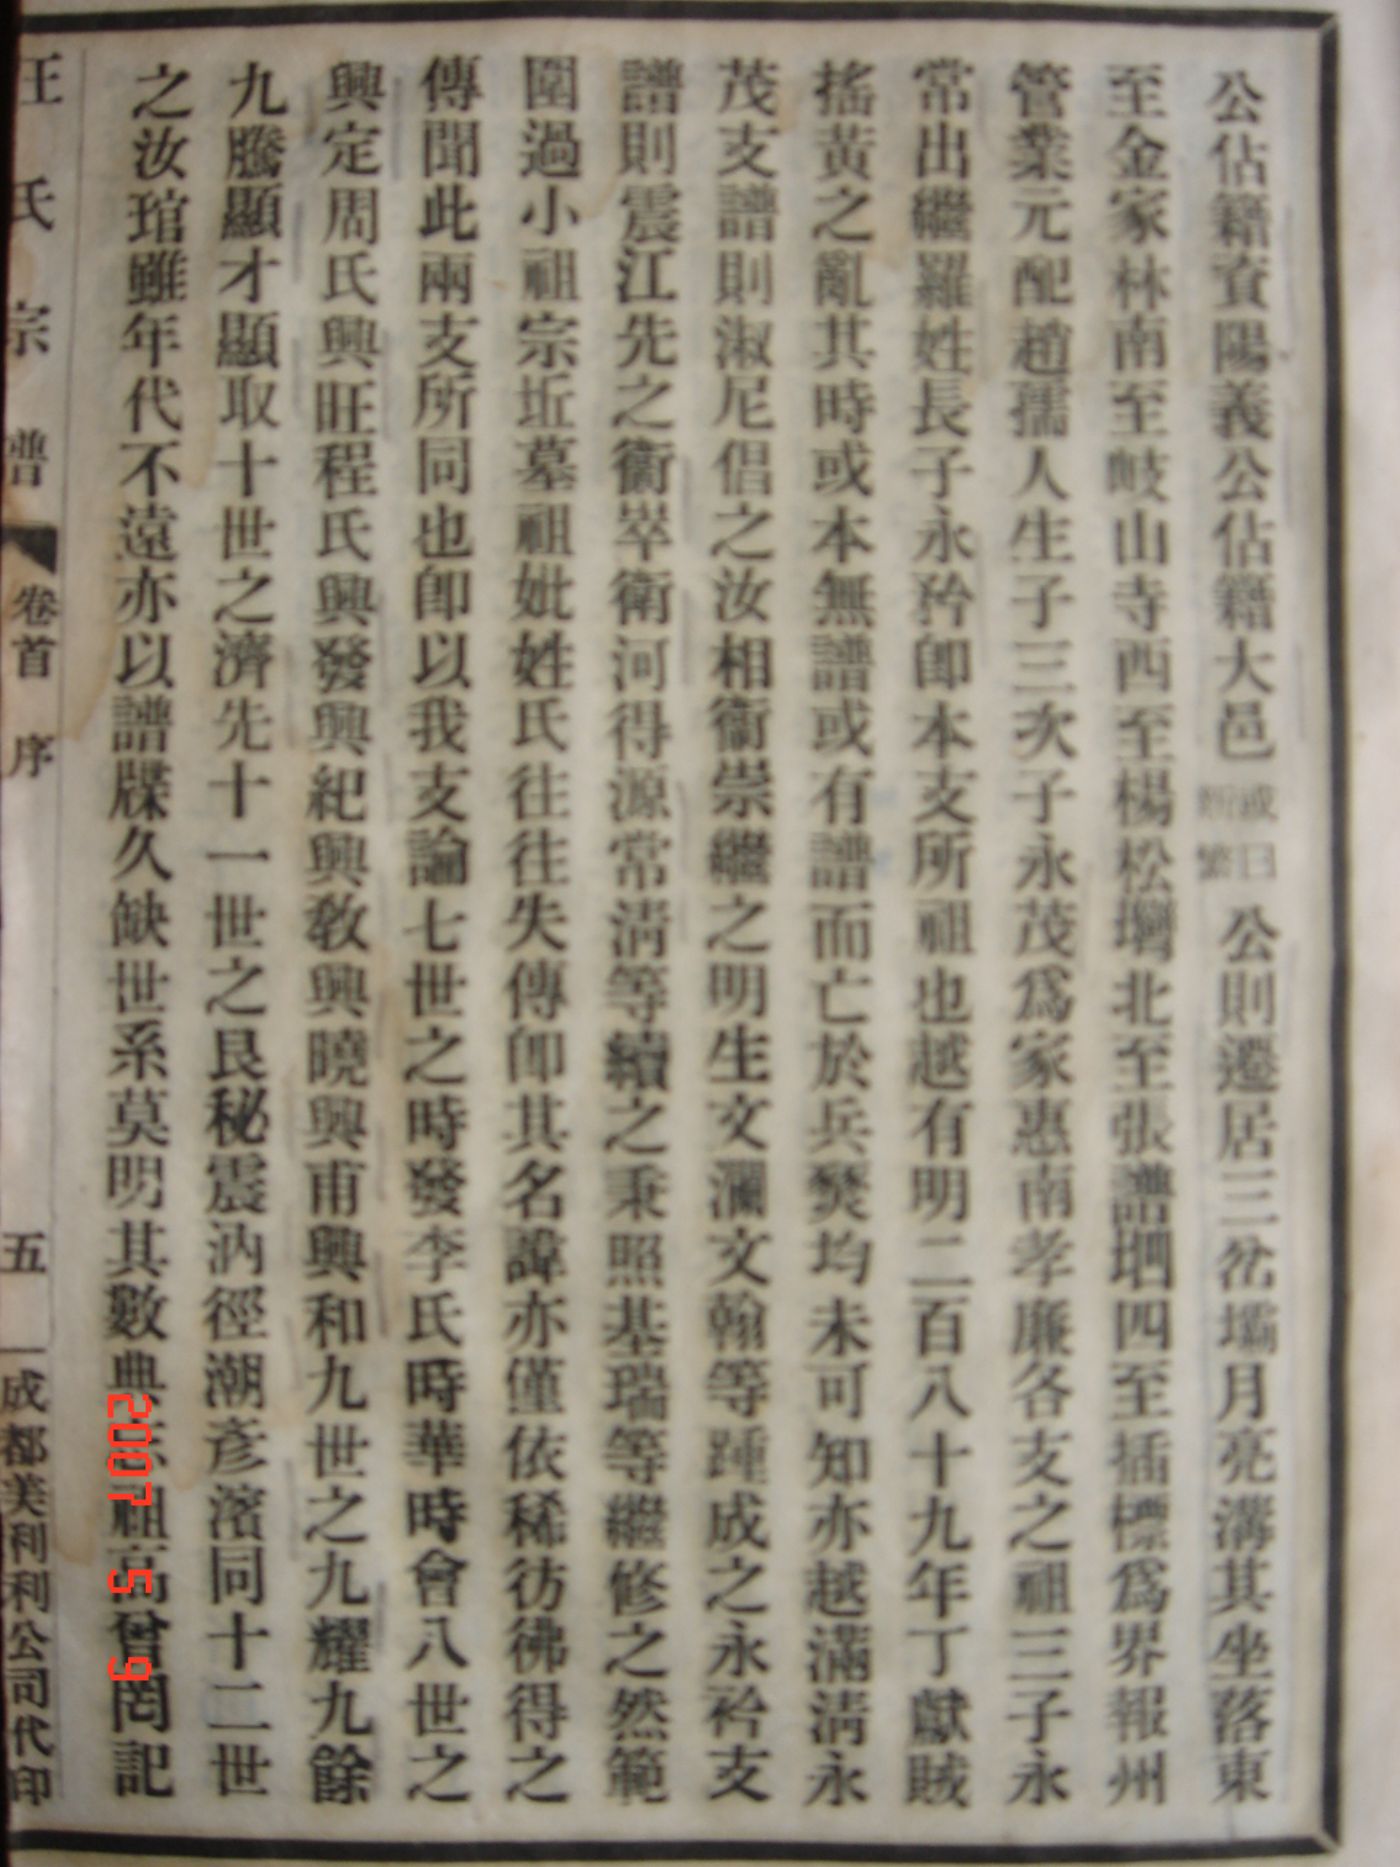 公佔籍資陽義公佔籍大邑或曰新繁公則遷居三岔壩月亮溝其坐落東
至金家林南至岐山寺西至楊松壪北至張譜垇四至插標為界報州
管業元配趙孺人生子三次子永茂為家惠南孝廉各支之祖三子永
常出繼羅姓長子永矜卽本支所祖也越有明二百八十九年丁獻賊
搖黃之亂其時或本無譜或有譜而亡於兵燹均未可知亦越滿淸永
茂支譜則淑尼倡之汝相衞崇繼之明生文瀾文翰等踵成之永衿支
譜則震江先之衞崒衛河得源常淸等續之秉照基瑞等繼修之然範
圍過小祖宗坵墓祖妣姓氏往往失傳卽其名諱亦僅依稀彷彿得之
傳聞此兩支所同也卽以我支論七世之時發李氏時華時會八世之
興定周氏興旺程氏興發興紀興敎興曉興甫興和九世之九耀九餘
九騰顯才顯取十世之濟先十一世之艮秘震汭徑潮彥濱同十二世
之汝琯雖年代不遠亦以譜牒久缺世系莫明其數典忘祖高曾罔記
汪氏宗譜 卷首 序 五 成都美利利公司代印
2007 5 9